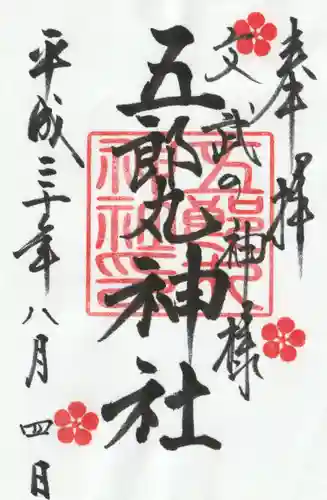 奉拝
文武の神様
五郎丸神社
平成三十年八月四日
五郎丸
神社印